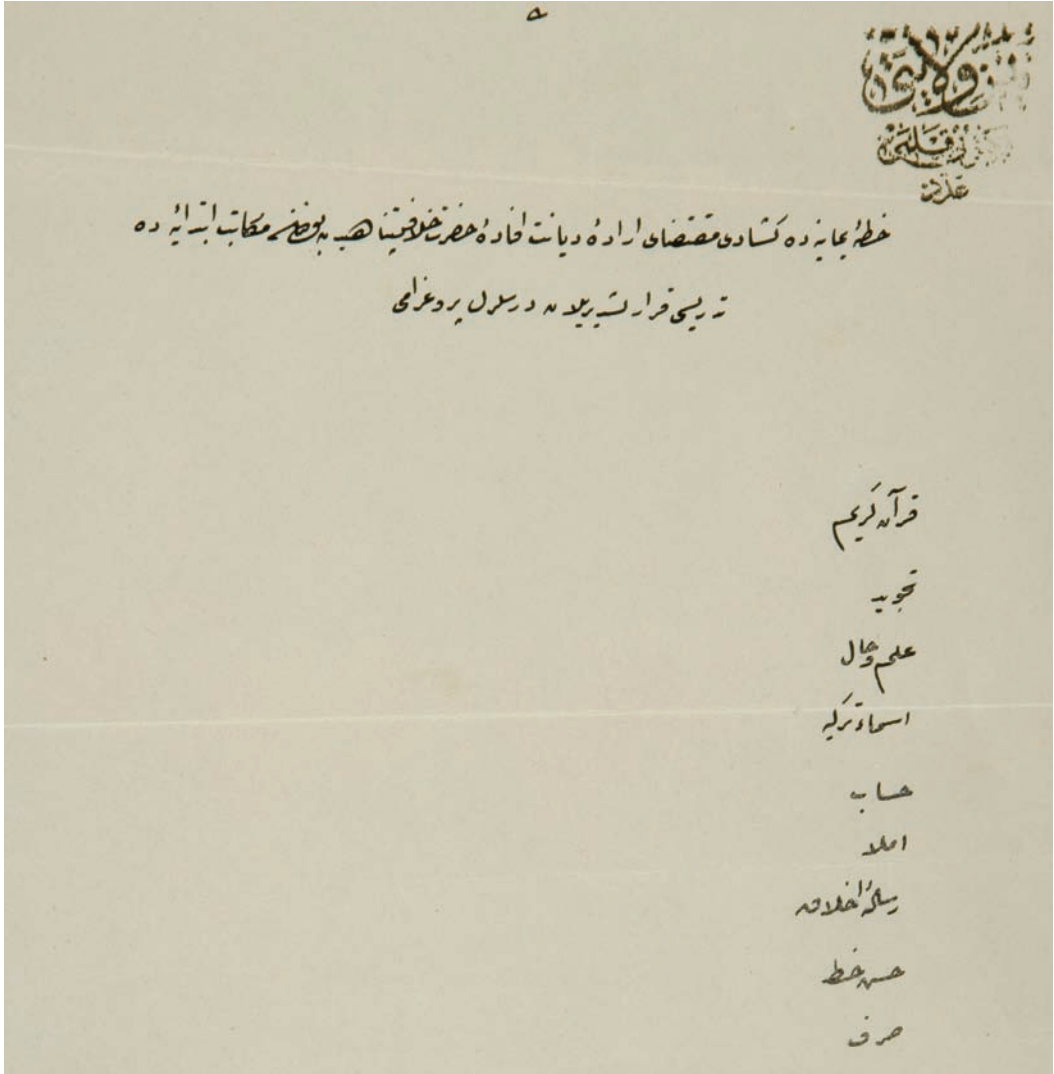 ولايتى
عدد
خطهٔ يمانيه ده كشادى مقتضاى ارادهٔ ديانت افادهٔ حضرت خلافتپناهيدن بولنان مكاتب ابتدائيه ده
تدريسى قرارلشديريلان درسلرك پروغرامى
قرآن كريم
تجويد
علم و حال
اسماء تركيه
حساب
املا
رسالهٔ اخلاق
حسن خط
صرف